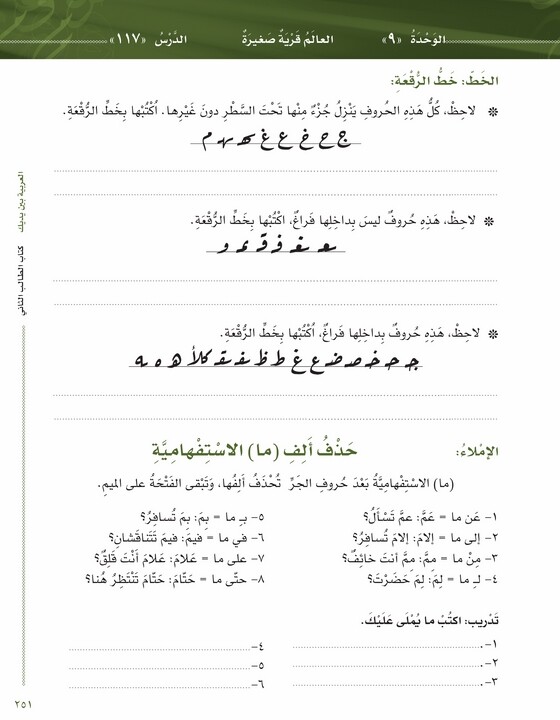 الوَحْدَةُ «٩» العالَمُ قَرْيَةٌ صَغيرَةٌ الدَّرْسُ «١١٧»
الخَطّ: خَطُّ الرُّقْعَةِ:
❊ لاحِظْ، كُلُّ هَذِهِ الحُروفِ يَنْزِلُ جُزْءٌ مِنْها تَحْتَ السَّطْرِ دونَ غَيْرِها. اُكْتُبْها بِخَطِّ الرُّقْعَةِ.
ج ح خ ع غ هـ ـهـ م
❊ لاحِظْ، هَذِهِ حُروفٌ ليسَ بِداخِلِها فَراغٌ، اكْتُبْها بِخَطِّ الرُّقْعَةِ.
❊ لاحِظْ، هَذِهِ حُروفٌ بِداخِلِها فَراغٌ، اُكْتُبْها بِخَطِّ الرُّقْعَةِ.
الإمْلاءُ: حَذْفُ أَلِفِ (ما) الاسْتِفْهامِيَّةِ
(ما) الاسْتِفْهامِيَّةُ بَعْدَ حُروفِ الجَرِّ تُحْذَفُ أَلِفُها، وَتَبْقى الفَتْحَةُ على الميمِ.
١- عَن ما = عَمَّ: عمَّ تَسْأَلُ؟
٢- إلى ما = إلامَ: إلامَ تُسافِرُ؟
٣- مِنْ ما = مِمَّ: مِمَّ أنتَ خائِفٌ؟
٤- لـِ ما = لِمَ: لِمَ حَضَرْتَ؟
٥- بـِ ما = بِمَ: بِمَ تُسافِرُ؟
٦- في ما = فيمَ: فيمَ تَتَناقَشانِ؟
٧- على ما = عَلامَ: عَلامَ أَنْتَ قَلِقٌ؟
٨- حتّى ما = حَتّامَ: حَتّامَ تَنْتَظِرُ هُنا؟
تَدْريب: اكتُبْ ما يُمْلَى عَلَيْكَ.
١-
٢-
٣-
٤-
٥-
٦-
العربية بين يديك كتاب الطالب الثاني
٢٥١